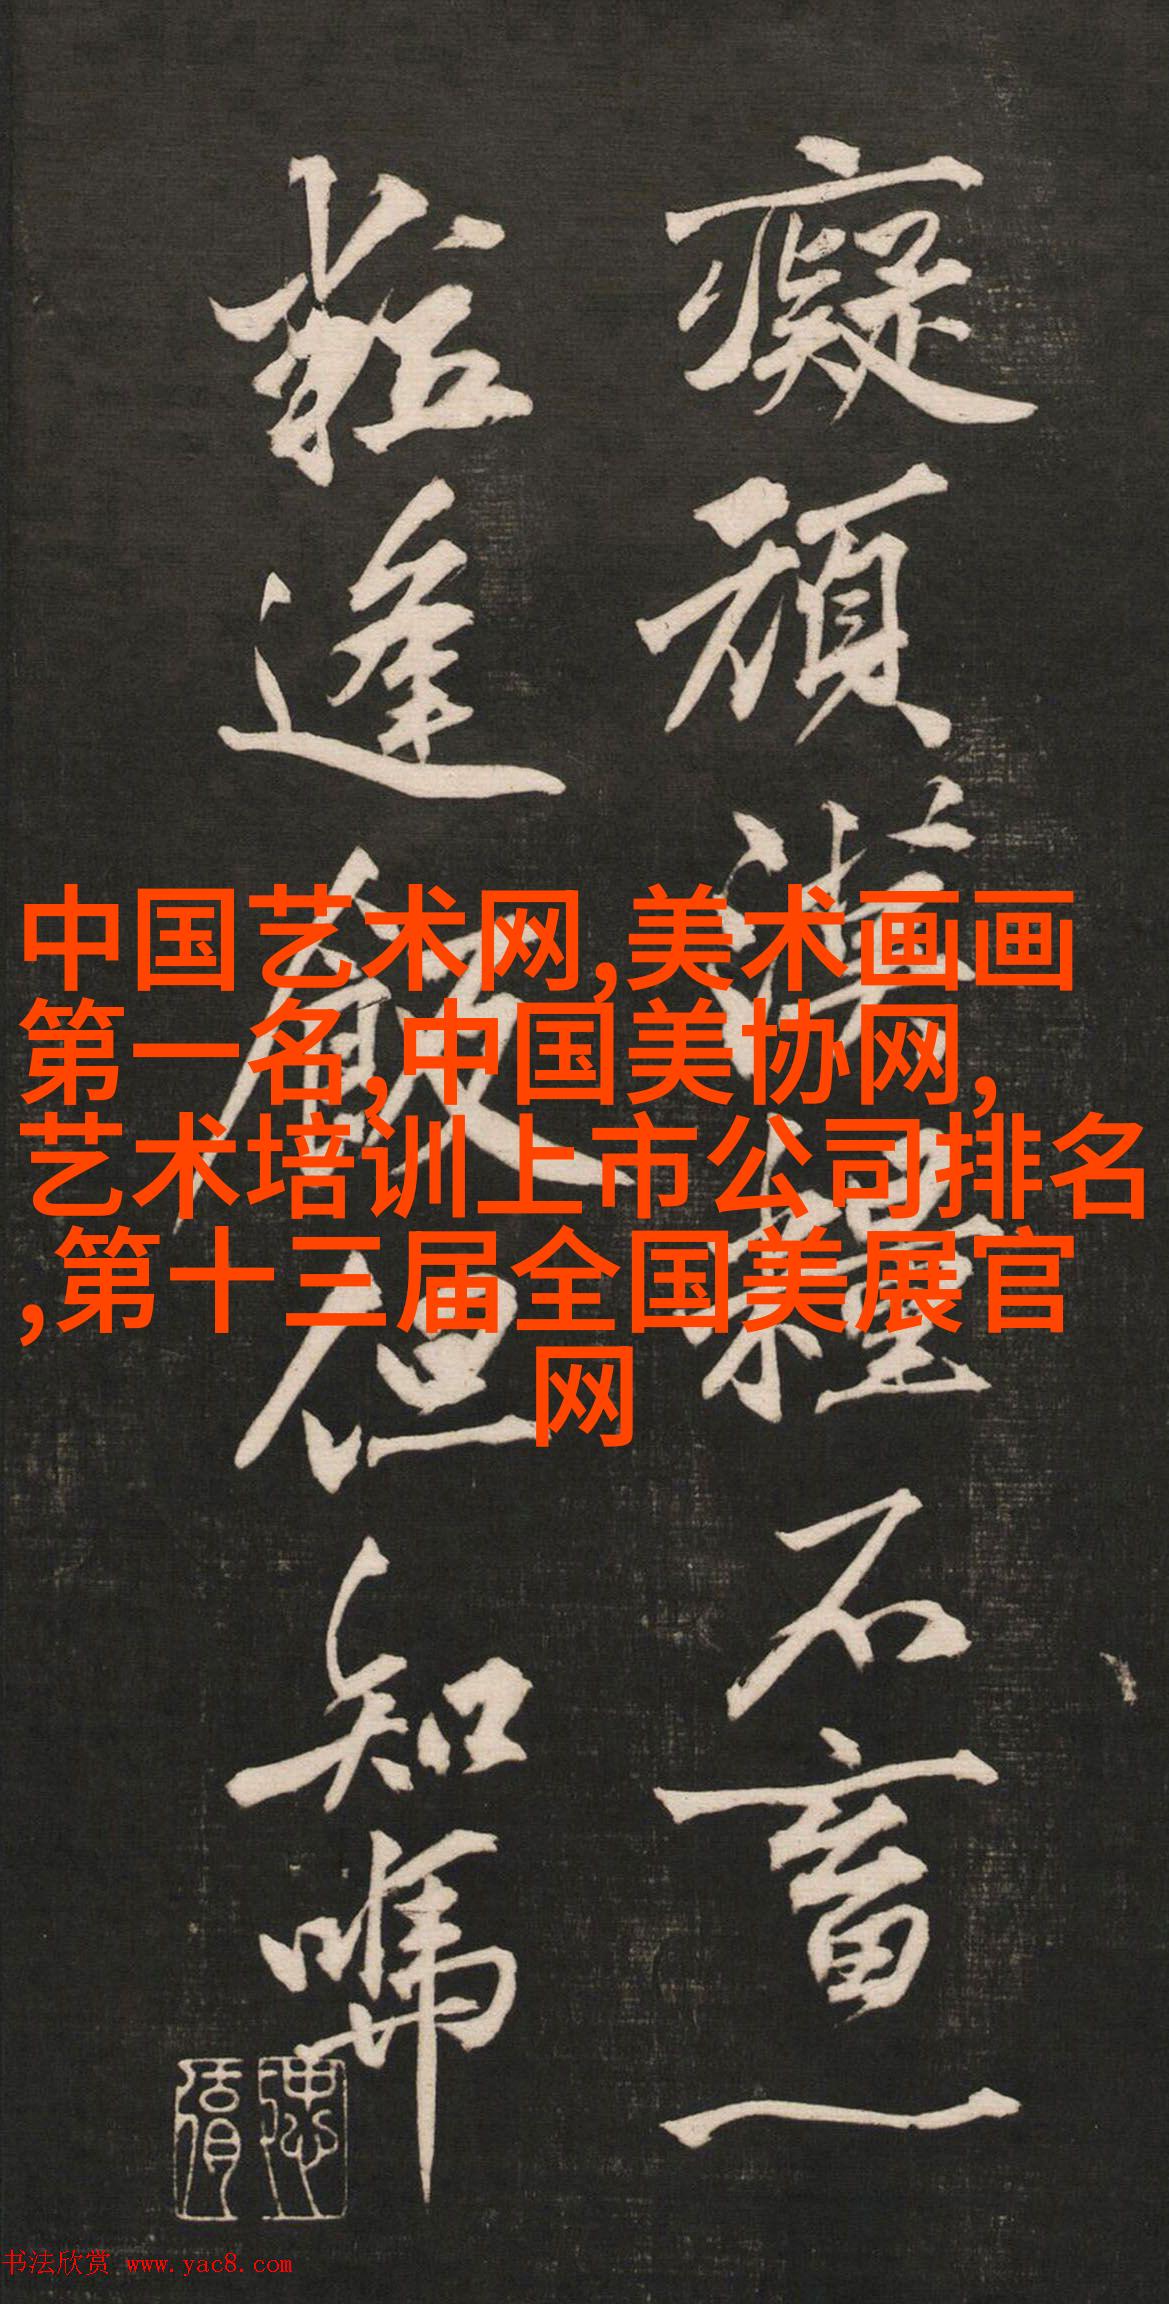 癡頑漢糧不畜一
粒逢飯但知
中国艺术网,美术画画
第一名,中国美协网,
艺术培训上市公司排名
,第十三届全国美展官
网
书法欣赏 www.yac8.com